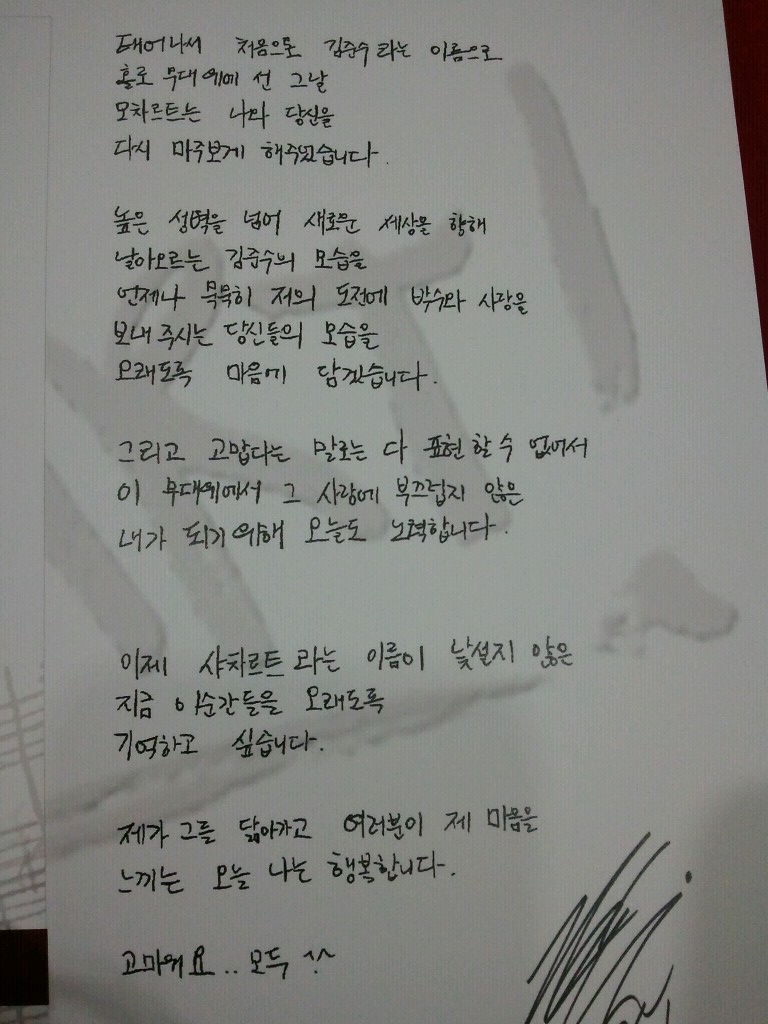 태어나서 처음으로 김준수 라는 이름으로
홀로 무대 위에 선 그날
모차르트는 나와 당신을
다시 마주보게 해주었습니다.
높은 성벽을 넘어 새로운 세상을 향해
날아오르는 김준수의 모습을
언제나 묵묵히 저의 도전에 박수와 사랑을
보내 주시는 당신들의 모습을
오래도록 마음에 담겠습니다.
그리고 고맙다는 말로는 다 표현 할 수 없어서
이 무대위에서 그 사랑에 부끄럽지 않은
내가 되기 위해 오늘도 노력합니다.
이제 샤차르트 라는 이름이 낯설지 않은
지금 이순간들을 오래도록
기억하고 싶습니다.
제가 그를 닮아가고 여러분이 제 마음을
느끼는 오늘 나는 행복합니다.
고마워요.. 모두 ^^